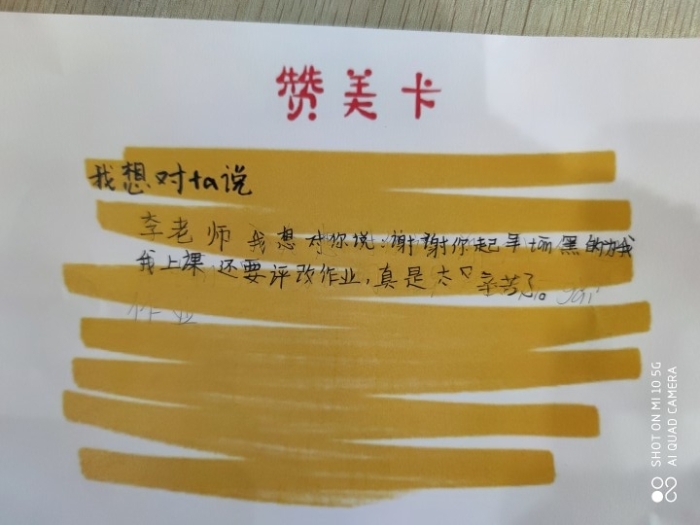 赞美卡
我想对ta说
李老师我想对你说:谢谢你起早摸黑的为我
我上课,还要评改作业,真是太辛苦了。gai
作业
SHOT ON MI 10 5G
AI QUAD CAMERA